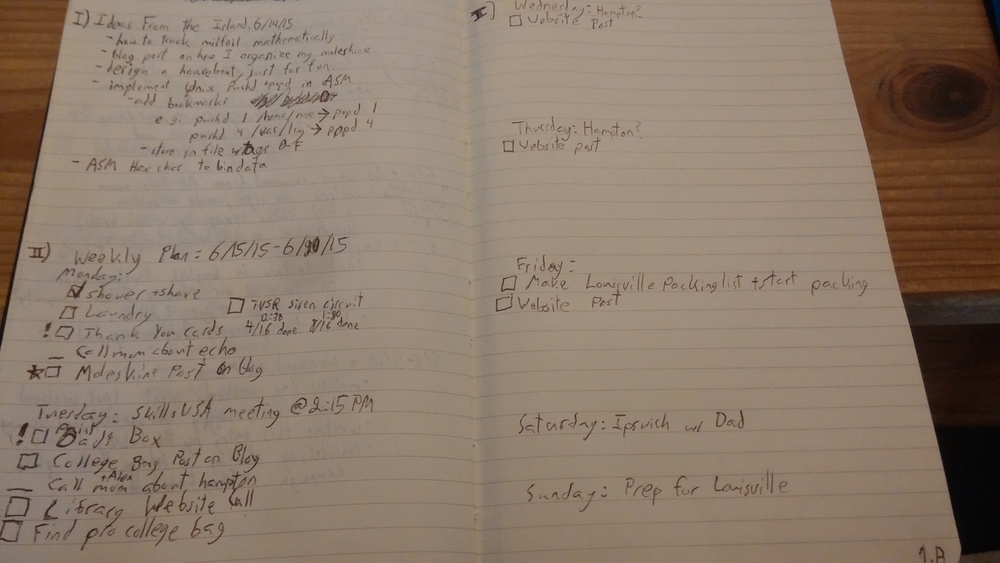 I) Ideas From the Island: 6/14/15
- how to track milfoil mathematically
- blog post on how I organize my moleskine
- design a houseboat, just for fun
- implement Unix pushd + popd in ASM
- add bookmarks
e.g. pushd 1 /home/me → popd 1
pushd 4 /var/log → popd 4
- store in file w/ tags 0-F
- ASM Hex char to bin data
II) Weekly Plan: 6/15/15-6/ /15
Monday:
☑ Shower + shave
☐ Laundry ☐ TVSR siren circuit
12:30 1:30
! ☐ Thank You cards 4/16 done 8/16 done
_ Call mom about echo
★ ☐ Moleskine Post on Blog
Tuesday: SkillsUSA meeting @ 2:15 PM
Paint
! ☐ Box
☐ College Bag Post on Blog
+Alex
_ Call mom about hampton
☐ Library Website Call
☐ Find pro college bag
II) Wednesday: Hampton?
☐ Website Post
Thursday: Hampton?
☐ Website post
Friday:
☐ Make Louisville Packing list + start packing
☐ Website Post
Saturday: Ipswich w/ Dad
Sunday: Prep for Louisville
1.B